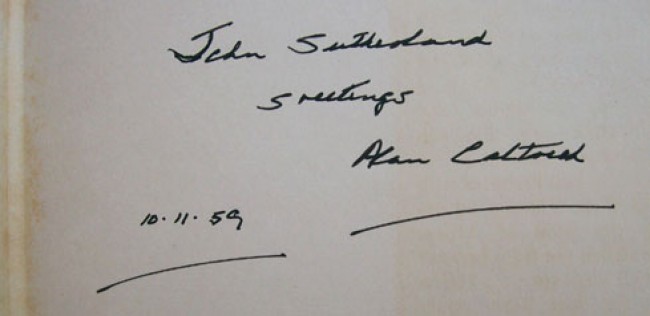 John Sutherland
Greetings
Alan Caltoed
10.11.59